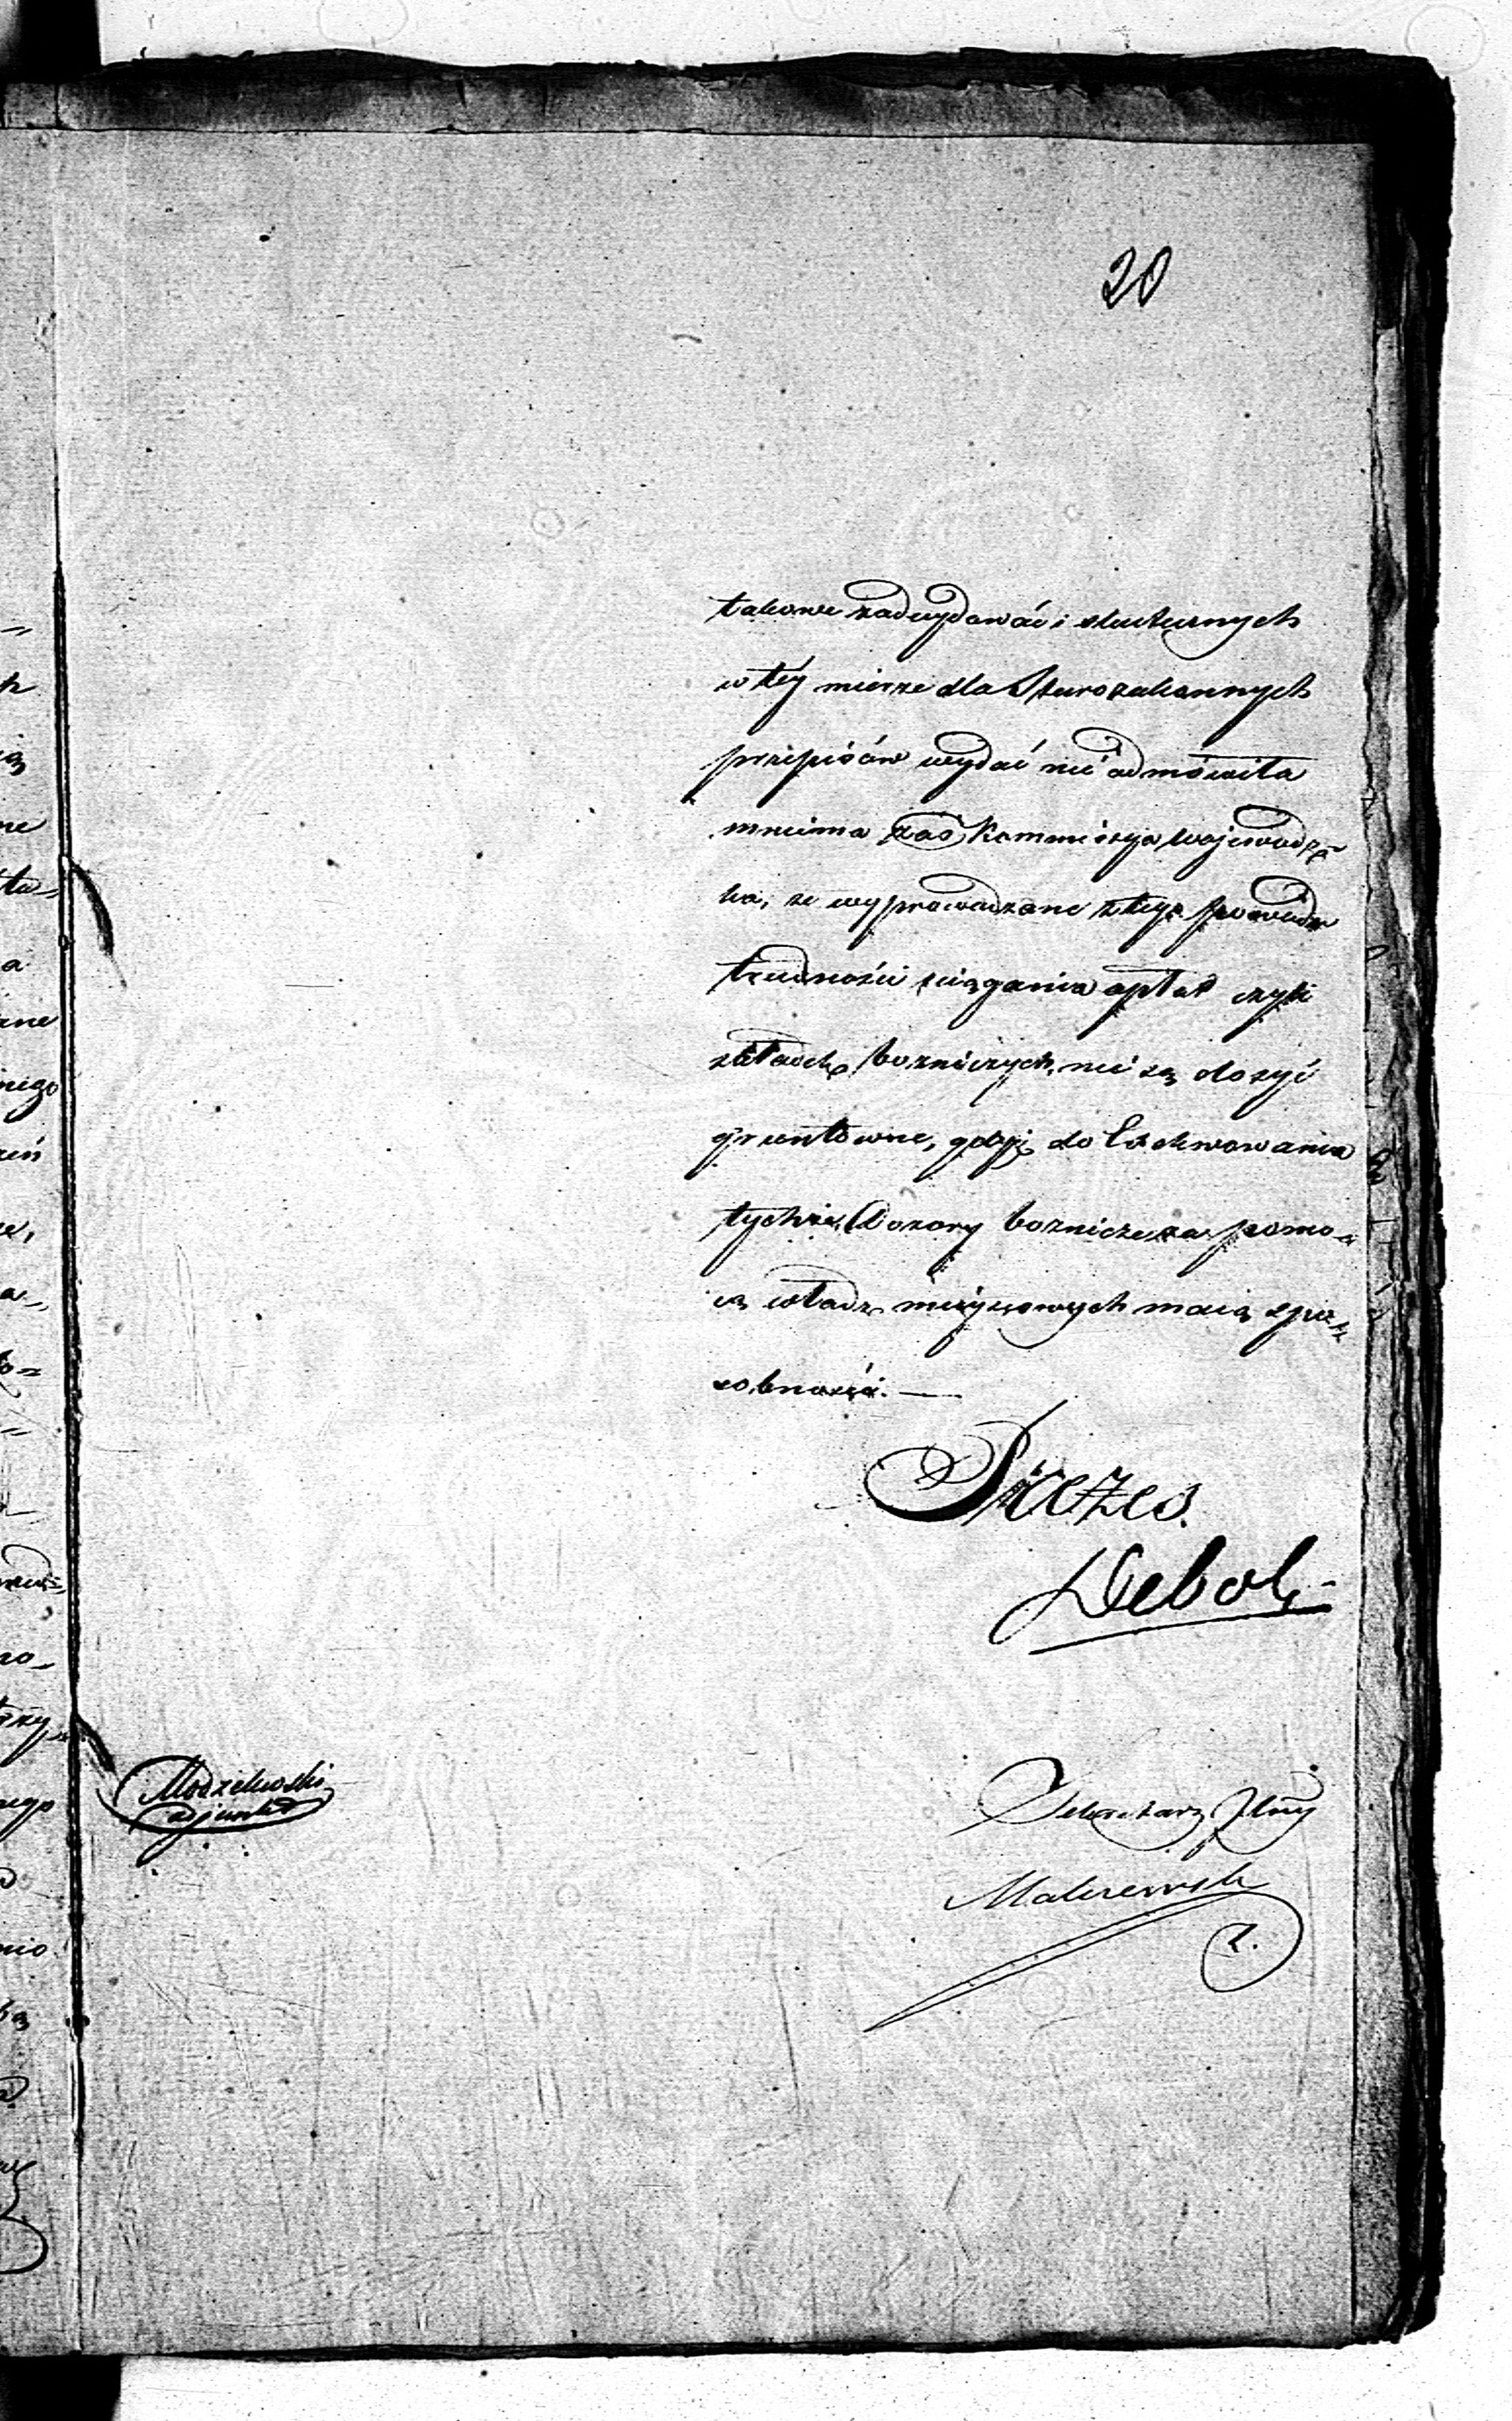 20
takowe zadecydować i skutecznych
w téy mierze dla Starozakonnych
przepisów wydać nie odmówiła
mniema zaś Kommissya Wojewódz
ka, że wyprowadzane z tego powodu
trudności ściągania opłat czyli
składek bożniczych, nie są dosyć
gruntowne, gdyż do
tychże, Dozory bożnicze za pomo-
cą władz mieyscowych maią spo-
sobność. —
Prezes.
Deboli
Modzelewski
adjunkt
Sekretarz Jlny
Malczewski